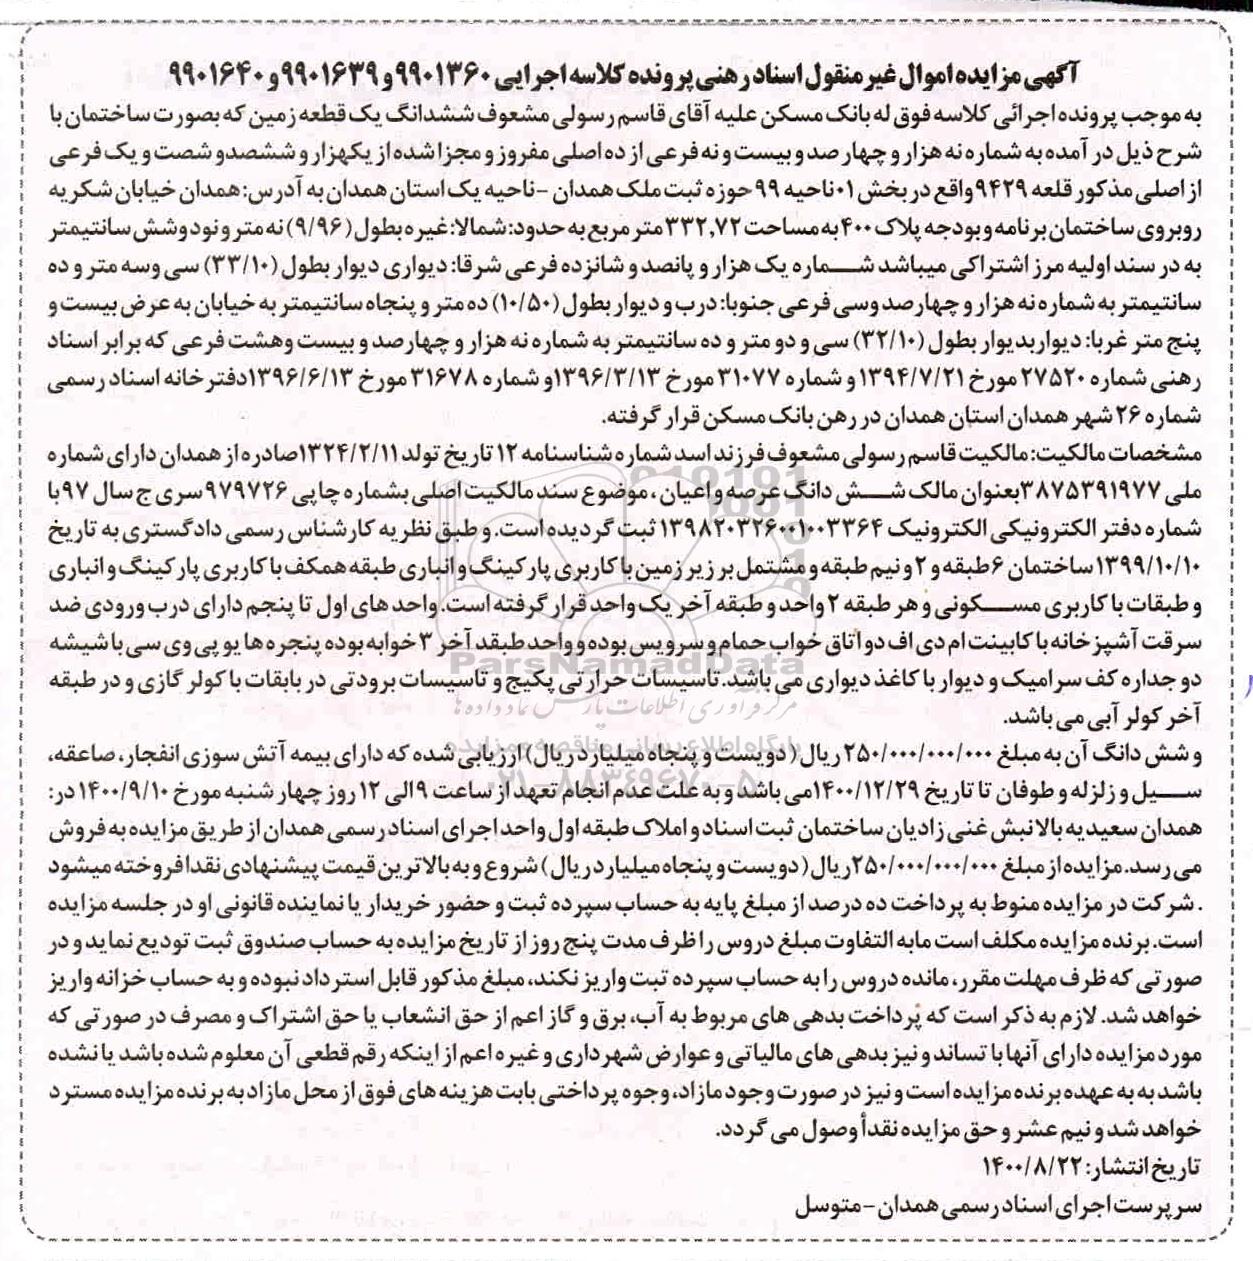 آگهی مزایده اموال غیر منقول اسناد رهنی پرونده کلاسه اجرایی ۹۹۰۱۳۶۰ و ۹۹۰۱۶۳۹ و ۹۹۰۱۶۴۰
به موجب پرونده اجرائی کلاسه فوق له بانک مسکن علیه آقای قاسم رسولی مشعوف ششدانگ یک قطعه زمین که بصورت ساختمان با
شرح ذیل در آمده به شماره نه هزار و چهار صد و بیست و نه فرعی از ده اصلی مفروز و مجزا شده از یکهزار و ششصد و شصت و یک فرعی
از اصلی مذکور قلعه ۹۴۲۹ واقع در بخش ۰۱ ناحیه ۹۹ حوزه ثبت ملک همدان -ناحیه یک استان همدان به آدرس: همدان خیابان شکریه
روبروی ساختمان برنامه و بودجه پلاک ۴۰۰ به مساحت ۳۳۲,۷۲ متر مربع به حدود: شمالا: غیره بطول (۹/۹۶) نه متر و نود و شش سانتیمتر
به در سند اولیه مرز اشتراکی میباشد شماره یک هزار و پانصد و شانزده فرعی شرقا: دیواری دیوار بطول (۳۳/۱۰) سی و سه متر و ده
سانتیمتر به شماره نه هزار و چهار صد و سی فرعی جنوبا: درب و دیوار بطول (۱۰/۵۰) ده متر و پنجاه سانتیمتر به خیابان به عرض بیست و
پنج متر غربا: دیوار بدیوار بطول (۳۲/۱۰) سی و دو متر و ده سانتیمتر به شماره نه هزار و چهار صد و بیست و هشت فرعی که برابر اسناد
رهنی شماره ۲۷۵۲۰ مورخ ۱۳۹۴/۷/۲۱ و شماره ۳۱۰۷۷ مورخ ۱۳۹۶/۳/۱۳ و شماره ۳۱۶۷۸ مورخ ۱۳۹۶/۶/۱۳ دفتر خانه اسناد رسمی
شماره ۲۶ شهر همدان استان همدان در رهن بانک مسکن قرار گرفته.
مشخصات مالکیت: مالکیت قاسم رسولی مشعوف فرزند اسد شماره شناسنامه ۱۲ تاریخ تولد ۱۳۲۴/۲/۱۱ صادره از همدان دارای شماره
ملی ۳۸۷۵۳۹۱۹۷۷ بعنوان مالک شش دانگ عرصه و اعیان ، موضوع سند مالکیت اصلی بشماره چاپی ۹۷۹۷۲۶ سری ج سال ۹۷ با
شماره دفتر الکترونیکی الکترونیک ۱۳۹۸۲۰۳۲۶۰۰۱۰۰۳۳۶۴ ثبت گردیده است. و طبق نظریه کارشناس رسمی دادگستری به تاریخ
۱۳۹۹/۱۰/۱۰ ساختمان ۶ طبقه و ۲ و نیم طبقه و مشتمل بر زیر زمین با کاربری پارکینگ و انباری طبقه همکف با کاربری پارکینگ و انباری
و طبقات با کاربری مسکونی و هر طبقه ۲ واحد و طبقه آخر یک واحد قرار گرفته است. واحد های اول تا پنجم دارای درب ورودی ضد
سرقت آشپزخانه با کابینت ام دی اف دو اتاق خواب حمام و سرویس بوده و واحد طبقد آخر ۳ خوابه بوده پنجره ها یو پی وی سی با شیشه
دو جداره کف سرامیک و دیوار با کاغذ دیواری می باشد. تاسیسات حرارتی پکیج و تاسیسات برودتی در بابقات با کولر گازی و در طبقه
آخر کولر آبی می باشد.
و شش دانگ آن به مبلغ ۲۵۰/۰۰۰/۰۰۰/۰۰۰ ریال (دویست و پنجاه میلیارد ریال) ارزیابی شده که دارای بیمه آتش سوزی انفجار، صاعقه،
سیل و زلزله و طوفان تا تاریخ ۱۴۰۰/۱۲/۲۹ می باشد و به علت عدم انجام تعهد از ساعت ۹ الی ۱۲ روز چهار شنبه مورخ ۱۴۰۰/۹/۱۰ در:
همدان سعیدیه بالا نبش غنی زادیان ساختمان ثبت اسناد و املاک طبقه اول واحد اجرای اسناد رسمی همدان از طریق مزایده به فروش
می رسد. مزایده از مبلغ ۲۵۰/۰۰۰/۰۰۰/۰۰۰ ریال (دویست و پنجاه میلیارد ریال) شروع و به بالاترین قیمت پیشنهادی نقدا فروخته میشود
. شرکت در مزایده منوط به پرداخت ده درصد از مبلغ پایه به حساب سپرده ثبت و حضور خریدار یا نماینده قانونی او در جلسه مزایده
است. برنده مزایده مکلف است مابه التفاوت مبلغ دروس را ظرف مدت پنج روز از تاریخ مزایده به حساب صندوق ثبت تودیع نماید و در
صورتی که ظرف مهلت مقرر، مانده دروس را به حساب سپرده ثبت واریز نکند، مبلغ مذکور قابل استرداد نبوده و به حساب خزانه واریز
خواهد شد. لازم به ذکر است که پرداخت بدهی های مربوط به آب، برق و گاز اعم از حق انشعاب یا حق اشتراک و مصرف در صورتی که
مورد مزایده دارای آنها با تساند و نیز بدهی های مالیاتی و عوارض شهرداری و غیره اعم از اینکه رقم قطعی آن معلوم شده باشد یا نشده
باشد به به عهده برنده مزایده است و نیز در صورت وجود مازاد، وجوه پرداختی بابت هزینه های فوق از محل مازاد به برنده مزایده مسترد
خواهد شد و نیم عشر و حق مزایده نقداً وصول می گردد.
تاریخ انتشار: ۱۴۰۰/۸/۲۲
سرپرست اجرای اسناد رسمی همدان -متوسل
ParsNamadData
مرکز فرآوری اطلاعات پارس نماد داده ها
پایگاه اطلاع رسانی مناقصه و مزایده
۰۲۱-۸۸۳۴۹۶۷۰-۵